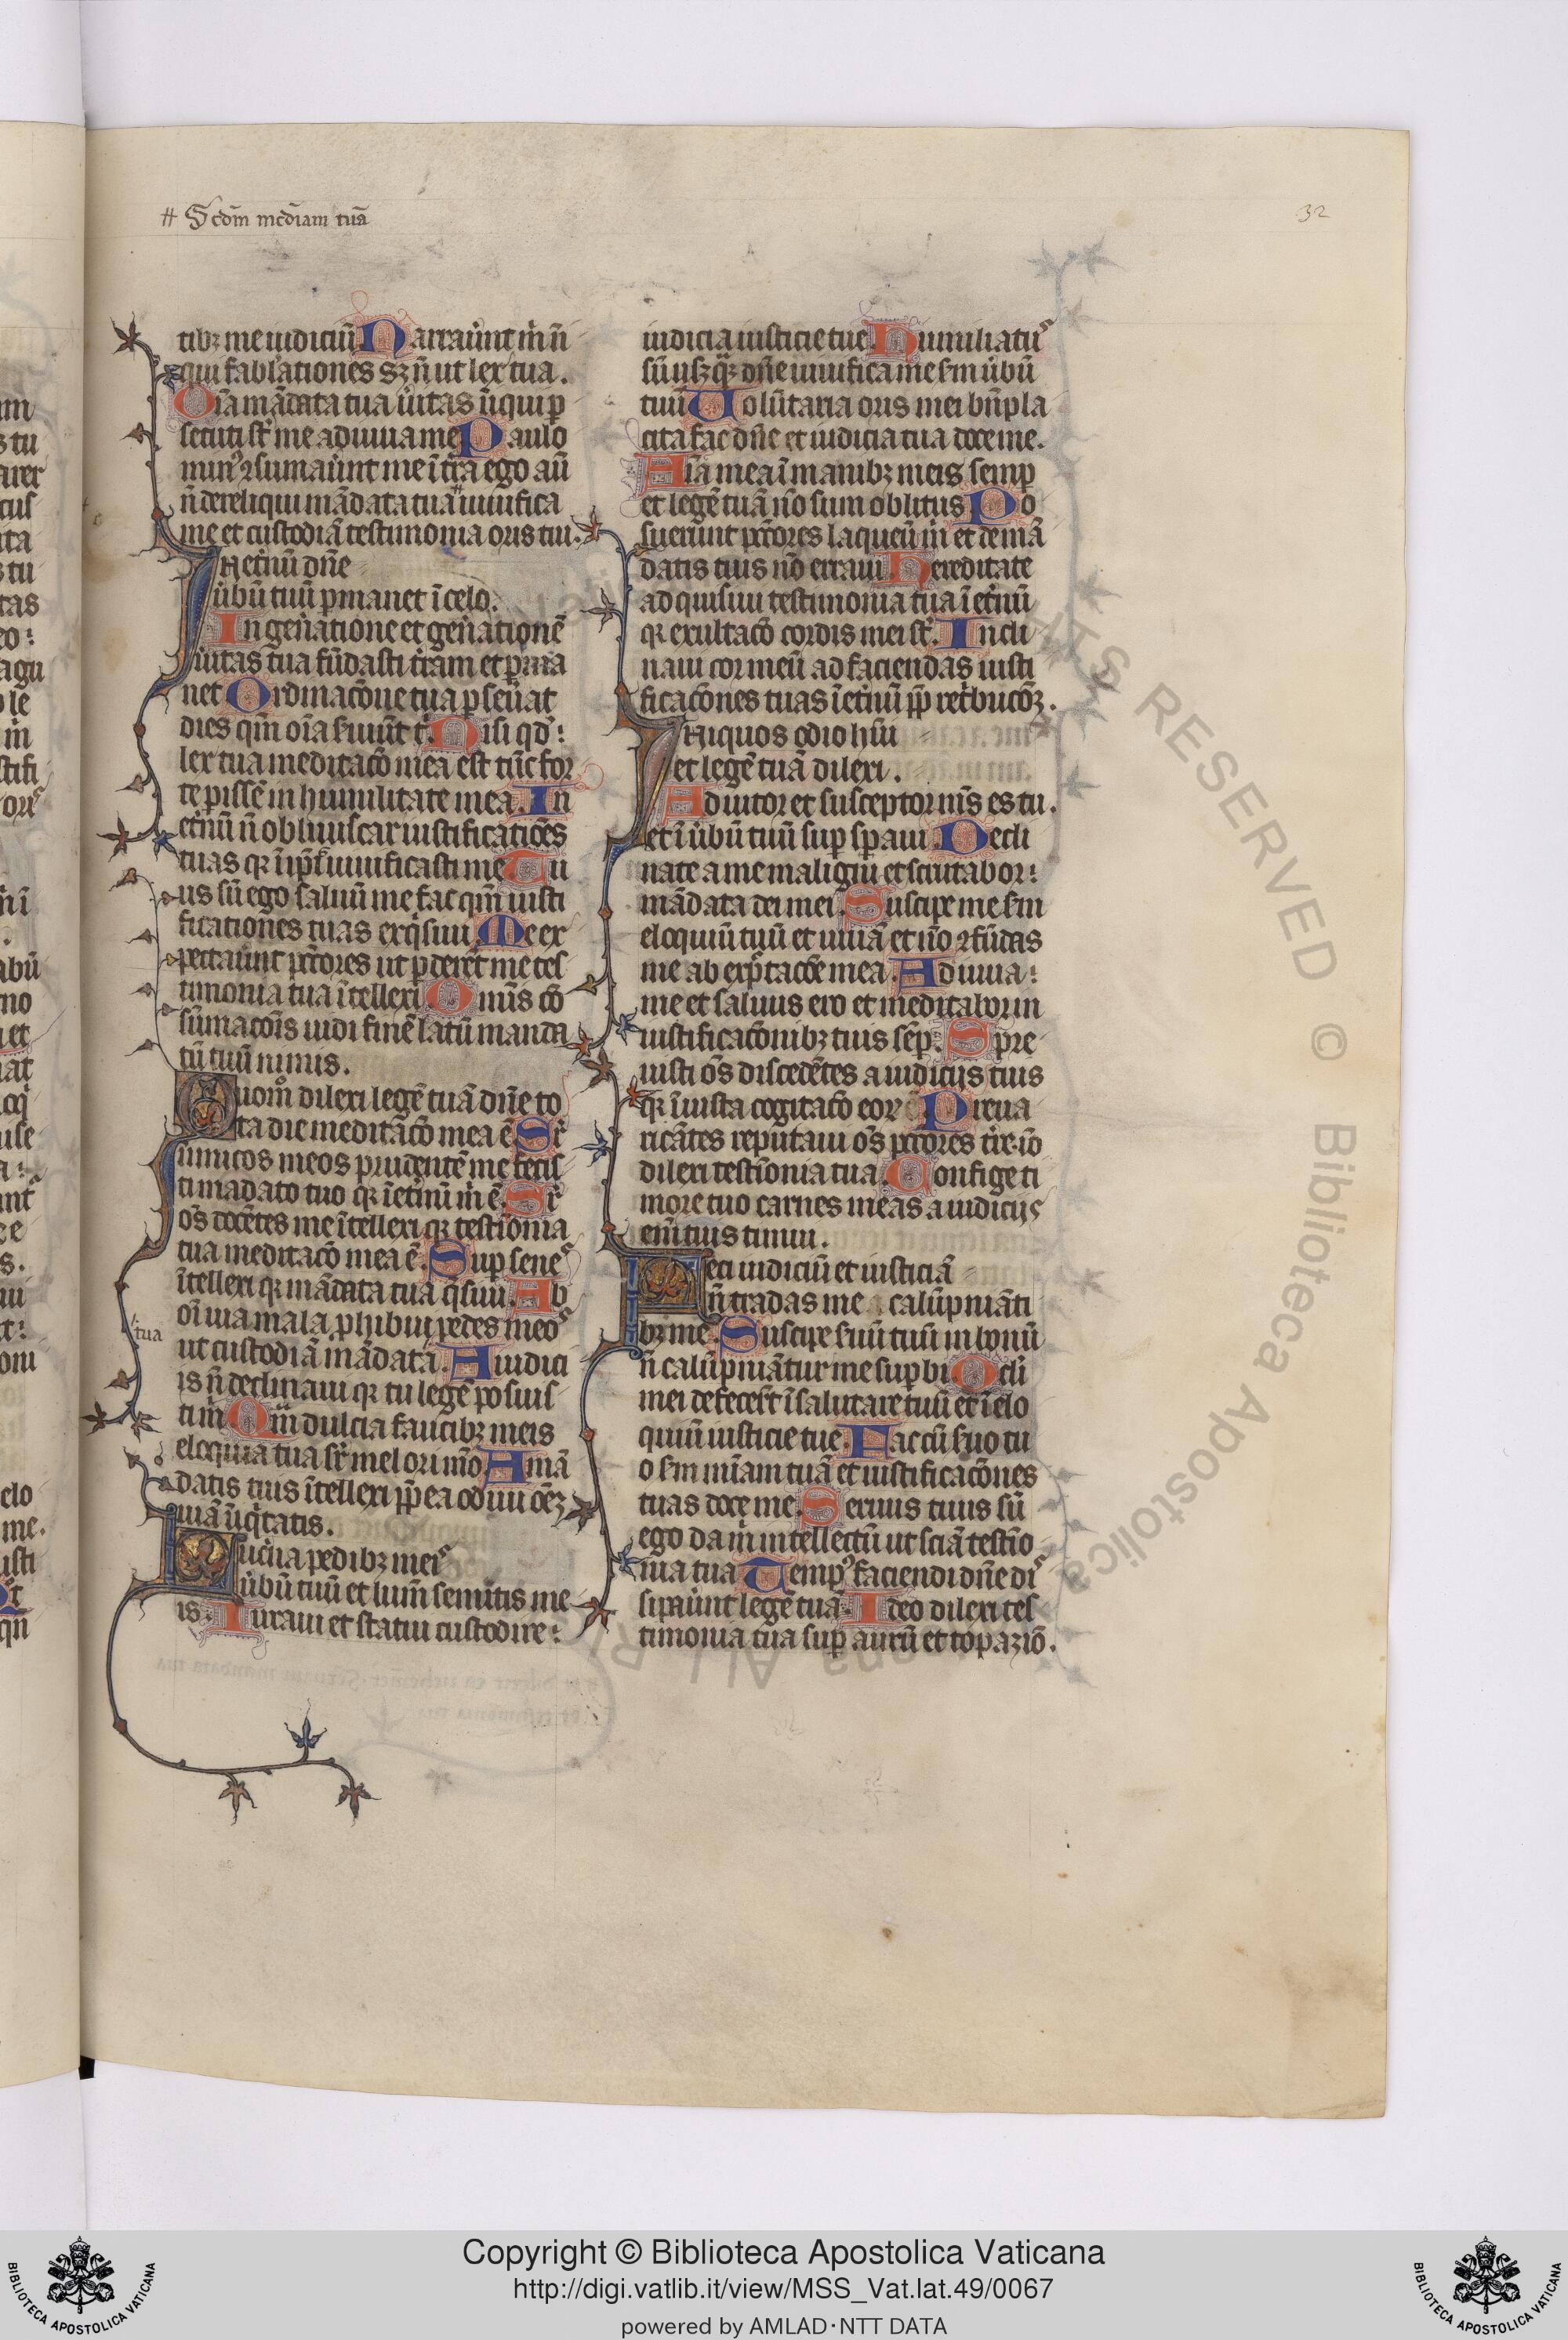 # Scdm̄ mc̄diam tuā
32
tibꝫ me iudiciū Narraūnt m̄ n̄
qui fablationes sꝫ n̄ ut lex tua.
Oīa mādata tua ūitas īiqui ꝑ
secuti st̄ me adiuua me Paulo
minꝰ ꝯsumaūnt me ī tr̄a ego aū
n̄ dereliqui mādata tua # uiuifica
me et custodiā testimonia oris tui.
In et̄nū dn̄e
ūbū tuū ꝑmanet ī celo.
In gen̄atione et gen̄ationē
ūitas tua fūdasti tr̄am et ꝑma
net Ordinacōne tua ꝑseūat
dies qm̄ oīa s̄uiūt t̄. Nisi qd̓:
lex tua meditacō mea est tūc for
te pissē in humilitate mea. In
et̄nū n̄ obliuiscar iustificatiōes
tuas qꝛ ī ip̄s uiuificasti me. Tu
us sū ego saluū me fac qm̄ iusti
ficationes tuas exq̄siui. Me ex
pectaūnt pc̄tores ut ꝑderēt me tes
timonia tua ītellexi. Omīs cō
sūmacōis uidi finē latū manda
tū tuū nimis.
Quomͦ dilexi legē tuā dn̄e to
ta die meditācō mea ē Sr̄
īnimicos meos prudentē me fecis
ti mādato tuo qꝛ ī et̄nū m̄ ē. Sr̄
oēs docētes me ītellexi qꝛ testīonia
tua meditacō mea ē. Suꝑ senes
ītellexi qꝛ mādata tua q̄siui. Ab
oī uia mala ꝓhibui pedes meos
tua
ut custodiā mādata. A iudici
is n̄ declinaui qꝛ tu legē posuis
ti m̄ Qm̄ dulcia faucibꝫ meis
eloquia tua sr̄ mel ori mō A mā
datis tuis ītellexi ꝓp̄ ea odiui oēꝫ
uiā īiq̄tatis.
Lucn̄a pedibꝫ meis
ūbū tuū et lum̄ semitis me
is. Iuraui et statui custodire:
iudicia iusticie tue. Humiliatus
sū usꝫq̄ꝫ dn̄e uiuifica me sm̄ ūbū
tuū Uolūtaria oris mei bn̄pla
cita fac dn̄e et iudicia tua doce me.
Aīa mea ī manibꝫ meis semꝑ
et legē tuā nō sum oblitus Po
suerunt pc̄tores laqueū m̄ et de mā
datis tuis nō erraui. Hereditate
adquisiui testimonia tua ī et̄nū
qꝛ exultacō cordis mei st̄. Incli
naui cor meū ad faciendas iusti
ficacōnes tuas ī et̄nū ꝓp̄ ret̄bucōꝫ.
Iniquos odio h̄ui
et legē tuā dilexi.
Adiutor et susceptor m̄s es tu.
et ī ūbū tuū suꝑ sꝑaui Decli
nate a me maligni et scrutabor:
mādata dei mei. Suscipe me sm̄
eloquiū tuū et uiuā et nō ꝯfūdas
me ab exp̄tacōe mea. Adiuua:
me et saluus ero et meditabor in
iustificacōnibꝫ tuis sēꝑ. Spre
uisti oēs discedētes a iudiciis tuis
qꝛ īiusta cogitacō eoꝛ Preua
ricātes reputaui oēs pc̄tores tr̄e. iō
dilexi testīonia tua. Confige ti
more tuo carnes meas a iudiciis
enī tuis timui.
Feci iudiciū et iusticiā
n̄ tradas me calūpniāti
bꝫ me. Suscipe s̄uū tuū in bonū
n̄ calūpniātur me suꝑbi Ocli
mei defecer̄t ī salutare tuū et ī elo
quiū iusticie tue. Fac cū s̄uo tu
o sm̄ mīam tuā et iustificacōnes
tuas doce me. Seruus tuus sū
ego da m̄ intellectū ut sciā testīo
nia tua Tempꝰ faciendi dn̄e dis
siꝑaūnt legē tuā. Ideo dilexi tes
timonia tua suꝑ aurū et topaziō.
RIGHTS RESERVED © Biblioteca Apostolica
BIBLIOTECA APOSTOLICA VATICANA
Copyright © Biblioteca Apostolica Vaticana
http://digi.vatlib.it/view/MSS_Vat.lat.49/0067
powered by AMLAD·NTT DATA
BIBLIOTECA APOSTOLICA VATICANA